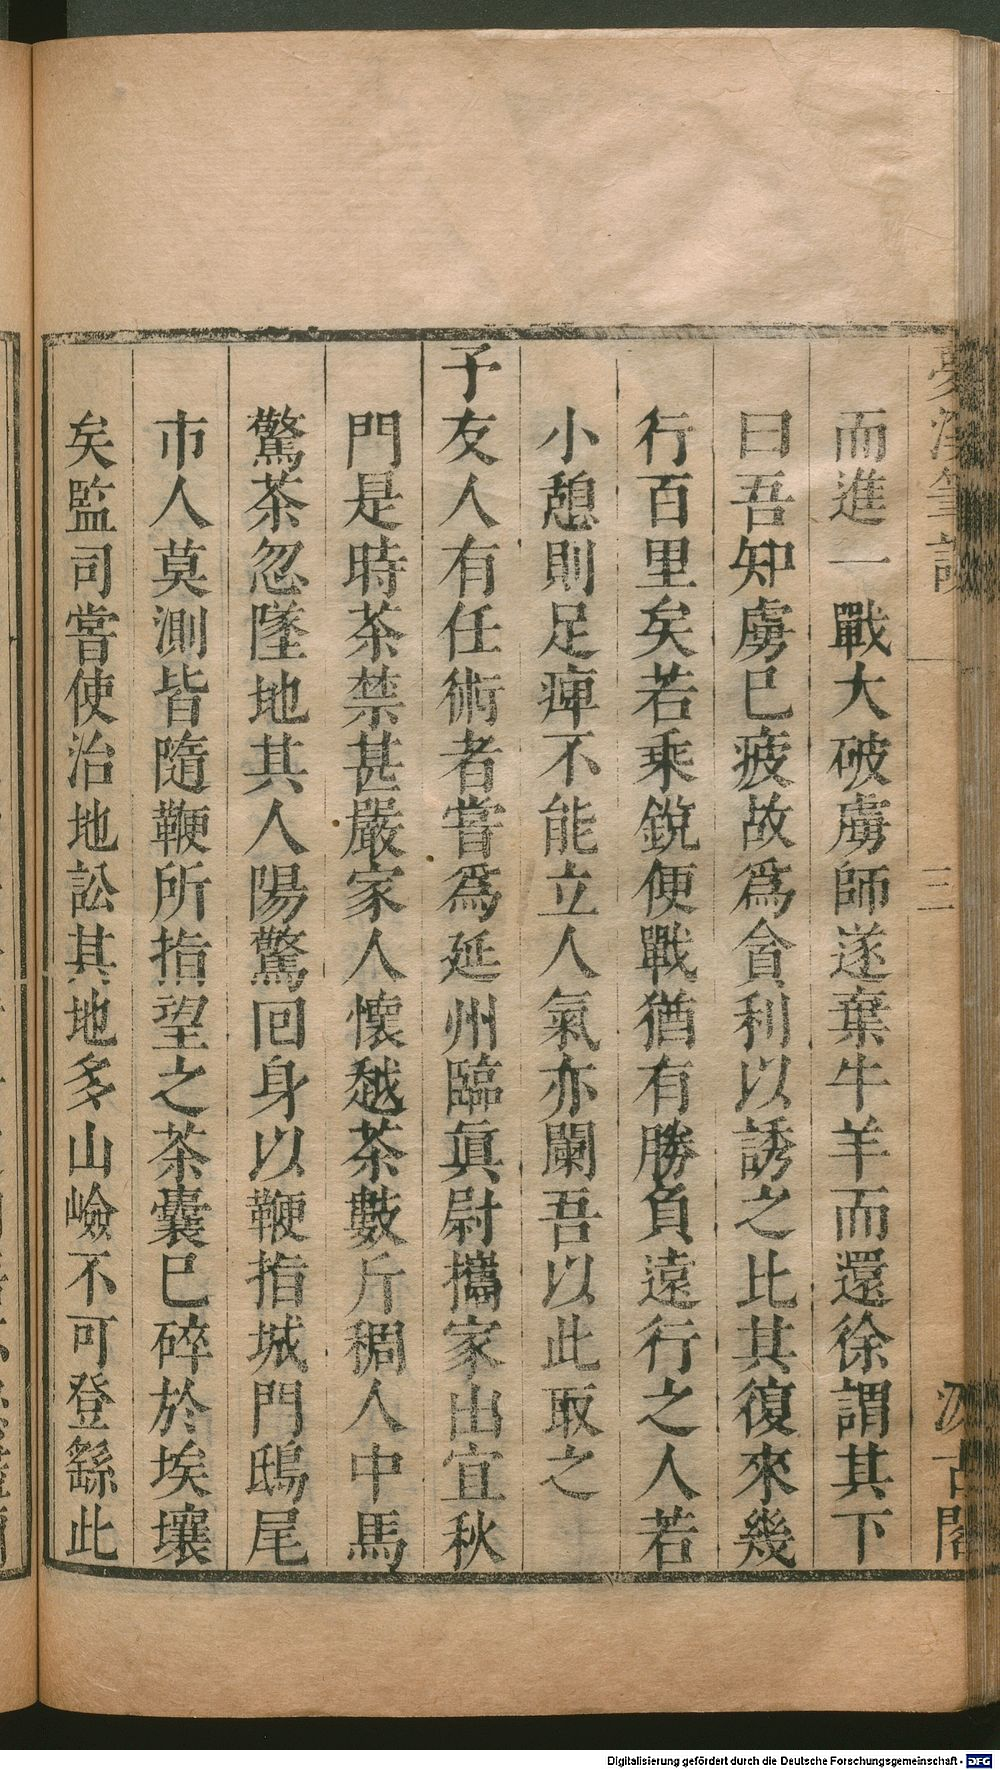 夢溪筆談
三
汲古閣
而進一戰大破虜師遂棄牛羊而還徐謂其下
曰吾知虜已疲故爲貪利以誘之比其復來幾
行百里矣若乘銳便戰猶有勝負遠行之人若
小憩則足痺不能立人氣亦闌吾以此取之
予友人有任術者嘗爲延州臨眞尉攜家出宜秋
門是時茶禁甚嚴家人懷越茶數斤稠人中馬
驚茶忽墜地其人陽驚回身以鞭指城門鴟尾
市人莫測皆隨鞭所指望之茶囊已碎於埃壤
矣監司嘗使治地訟其地多山嶮不可登繇此
Digitalisierung gefördert durch die Deutsche Forschungsgemeinschaft - DFG